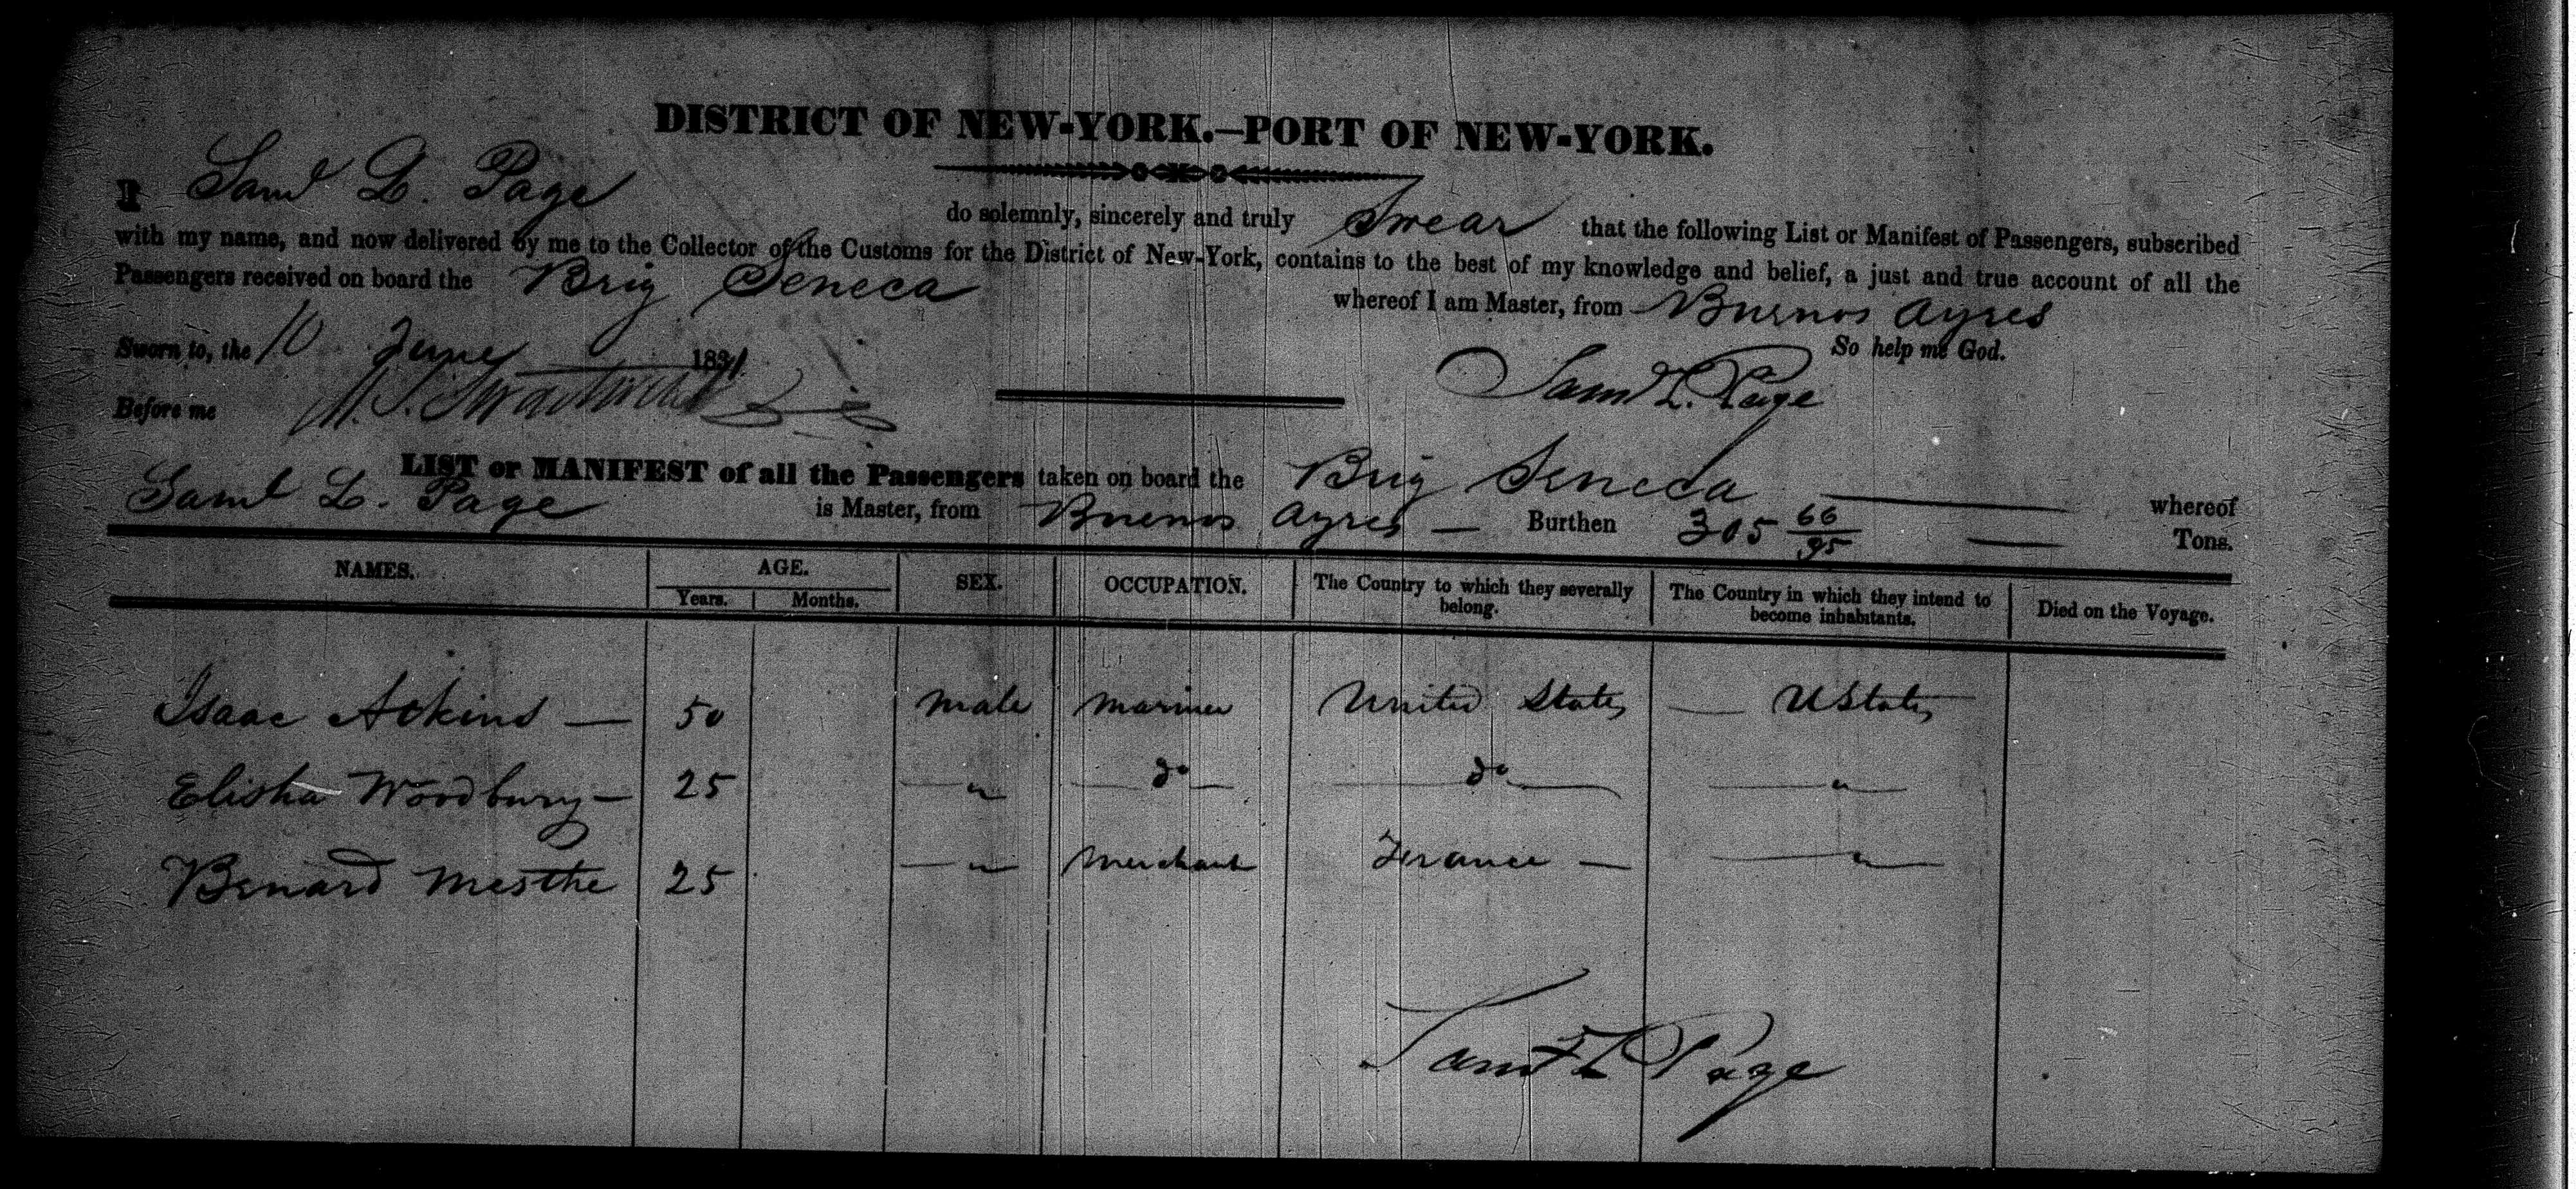 DISTRICT OF NEW-YORK.—PORT OF NEW-YORK.
I Saml L. Page do solemnly, sincerely and truly Swear that the following List or Manifest of Passengers, subscribed
with my name, and now delivered by me to the Collector of the Customs for the District of New-York, contains to the best of my knowledge and belief, a just and true account of all the
Passengers received on board the Brig Seneca whereof I am Master, from Buenos Ayres
So help me God.
Sworn to, the 10 June 1831.
Saml L. Page
Before me
LIST or MANIFEST of all the Passengers taken on board the Brig Seneca whereof
Saml L. Page is Master, from Buenos Ayres — Burthen 305 66/95 Tons.
NAMES. AGE. SEX. OCCUPATION. The Country to which they severally belong. The Country in which they intend to become inhabitants. Died on the Voyage.
Years. Months.
Isaac Atkins — 50 male mariner United States — U States
Elisha Woodbury — 25 — " — do — — do — — " —
Benard Mesthe 25 — " — Merchant France — — " —
Saml L Page